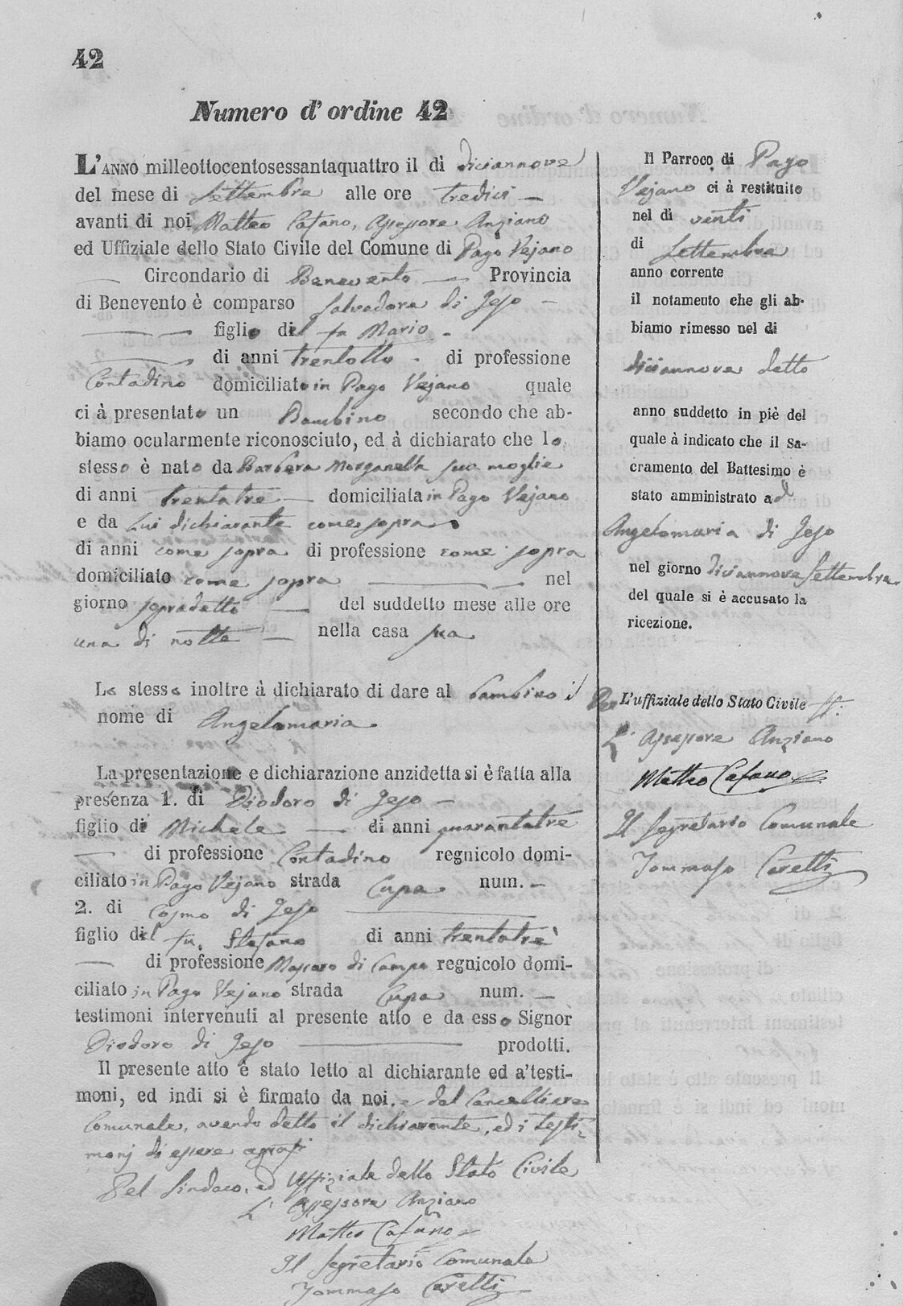 42
Numero d'ordine 42
L'ANNO milleottocentosessantaquattro il dì diciannove
del mese di Settembre alle ore tredici
avanti di noi Matteo Cafano, Assessore Anziano
ed Uffiziale dello Stato Civile del Comune di Pago Vejano
Circondario di Benevento Provincia
di Benevento è comparso Salvadore di Jeso
figlio del fu Mario
di anni trentotto di professione
Contadino domiciliato in Pago Vejano quale
ci à presentato un Bambino secondo che ab-
biamo ocularmente riconosciuto, ed à dichiarato che lo
stesso è nato da Barbera Morganella sua moglie
di anni trentatre domiciliata in Pago Vejano
e da Lui dichiarante come sopra
di anni come sopra di professione come sopra
domiciliato come sopra nel
giorno sopradetto del suddetto mese alle ore
una di notte nella casa sua
Lo stesso inoltre à dichiarato di dare al bambino il
nome di Angelomaria
La presentazione e dichiarazione anzidetta si è fatta alla
presenza 1. di Diodoro di Jeso
figlio di Michele di anni quarantatre
di professione Contadino regnicolo domi-
ciliato in Pago Vejano strada Cupa num. -
2. di Cosmo di Jeso
figlio del fu Stefano di anni trentatrè
di professione Massaro di Campo regnicolo domi-
ciliato in Pago Vejano strada Cupa num. -
testimoni intervenuti al presente atto e da esso Signor
Diodoro di Jeso prodotti.
Il presente atto è stato letto al dichiarante ed a' testi-
moni, ed indi si è firmato da noi, e dal Cancelliere
Comunale, avendo detto il dichiarante, ed i testi-
monj di essere
Pel Sindaco, ed Uffiziale dello Stato Civile
L'Assessore Anziano
Matteo Cafano
Il Segretario Comunale
Tommaso Caretti
Il Parroco di Pago
Vejano ci à restituito
nel dì venti
di Settembre
anno corrente
il notamento che gli ab-
biamo rimesso nel dì
diciannove detto
anno suddetto in piè del
quale à indicato che il Sa-
cramento del Battesimo è
stato amministrato ad
Angelomaria di Jeso
nel giorno diciannove Settembre
del quale si è accusato la
ricezione.
Per L'uffiziale dello Stato Civile
L'Assessore Anziano
Matteo Cafano
Il Segretario Comunale
Tommaso Caretti